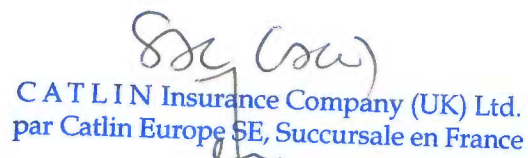 CATLIN Insurance Company (UK) Ltd.
par Catlin Europe SE, Succursale en France